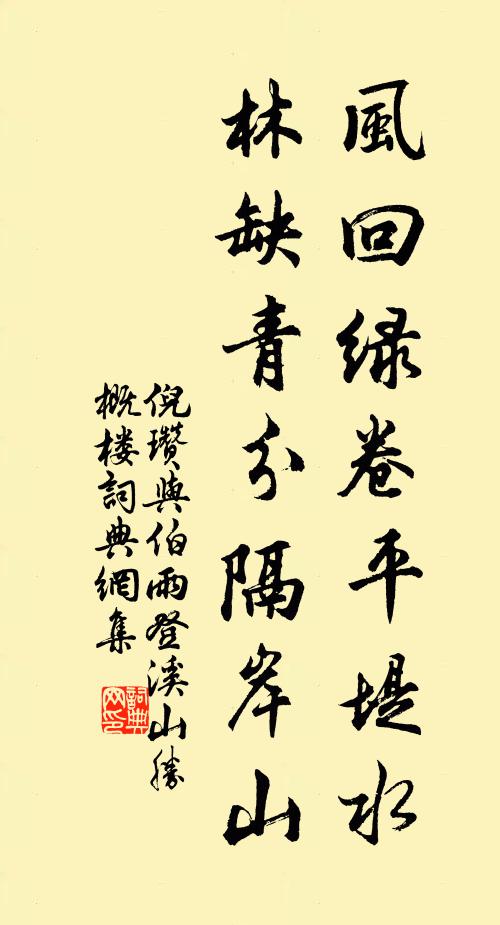 風回绿卷平堤水
林缺青分隔岸山
倪瓚與伯雨登溪山勝
概楼詞典網集
詞典网印